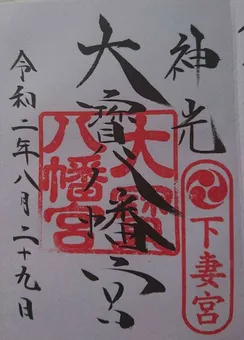 神光
大寳八幡宮
大宝
八幡宮
下妻宮
令和二年八月二十九日